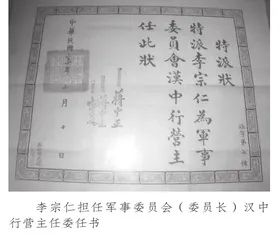 特派狀
特派李宗仁為軍事
委員會漢中行營主
任此狀
蔣中正
中華民國
年
月
日
李宗仁担任军事委员会（委员长）汉中
行营主任委任书